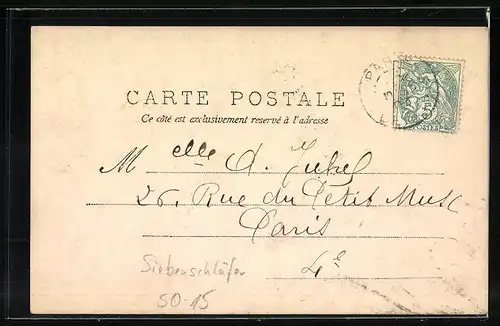 CARTE POSTALE
Ce côté est exclusivement reservé à l'adresse
PARIS
POSTES
Melle A. Juhel
26, Rue du Petit Musc
Paris
4e
Siebenschläfer
SO-15